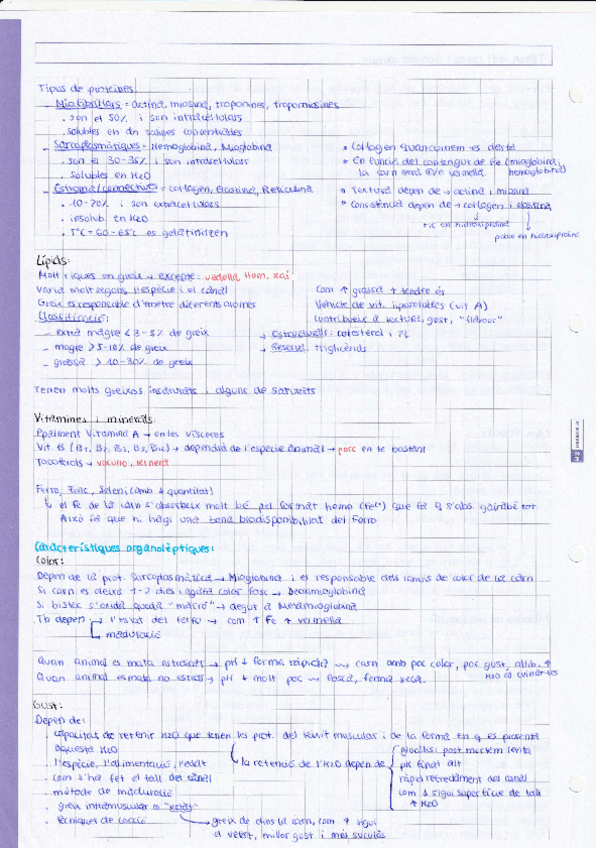 Tipus de proteïnes
- Miofibrillars = actina, miosina, troponines, tropomiosines
. són el 50% i són intracel·lulars
. solubles en dn salines concentrades
- Sarcoplasmàtiques = Hemoglobina, Mioglobina
. són el 30-35% i són intracel·lulars
. solubles en H2O
- Estroma/connectiu = colàgen, Elastina, Reticulina
. 10-20% i són extracel·lulars
. insolub. en H2O
. Tª = 60-65ºC es gelatinitzen
• Col·lagen quan cuinem es
• En funció del contingut de Fe (mioglobina, hemoglobina)
la carn serà + / - vermella
• Textura depèn de → actina i miosina
• Consistència depèn de → colàgen i elastina
ric en hidroxiprolina
pobre en hidroxiprolina
Lípids:
Molt riques en greix → excepte: vedella, llom, xai
Varia molt segons l'espècie i el canal
Greix és responsable d'emetre diferents aromes
Classificació:
- extra magre < 3-5% de greix
- magre > 5-10% de greix
- grassa > 10-30% de greix
Com ↑ grassa ↑ tendre és
Vehicle de vit. liposolubles (vit A)
Contribueix a textura, gust, "flavour"
→ Estructurals: colesterol i FL
→ Reserva: Triglicèrids
Tenen molts greixos insaturats i alguns de saturats
Vitamines i minerals:
Ppalment Vitamina A → en les vísceres
Vit. B (B1, B2, B3, B5, B12) → dependrà de l'espècie animal → porc en té bastant
Tocoferols → vacuno, ternera
Ferro, Zinc, Seleni (amb ↓ quantitat)
↳ el Fe de la carn s'absorbeix molt bé pel format hemo (Fe²⁺) que fa q s'abs. gairebé tot.
Això fa que hi hagi una bona biodisponibilitat del Ferro
Característiques organolèptiques:
Color:
Depèn de la prot. Sarcoplasmàtica → Mioglobina i és responsable dels canvis de color de la carn
Si carn es deixa 1-2 dies i agafa color fosc → Deoximioglobina
Si bistec s'oxida queda "marró" → degut a Metamioglobina
Tb depèn → l'estat del ferro → com ↑ Fe ↑ vermella
→ maduració
Quan animal es mata estressat → pH ↓ forma ràpida → carn amb poc color, poc gust, allib. ↑ H2O al cuinar-los
Quan animal es mata no estress → pH ↓ molt poc → fosca, ferma, seca.
Gust:
Depèn de:
. capacitat de retenir H2O que tenen les prot. del teixit muscular i de la forma en q es presenta
aquesta H2O
. l'espècie, l'alimentació, l'edat
. com s'ha fet el tall del canal
. mètode de maduració
. greix intramuscular o "veteat"
. tècniques de cocció
la retenció de l'H2O depèn de
glucòlisi post mortem lenta
pH final alt
ràpid refredament del canal
com ↓ sigui superfície de tall
↑ H2O
→ greix de dins la carn, com ↑ sigui
el vetejat, millor gust i més suculès